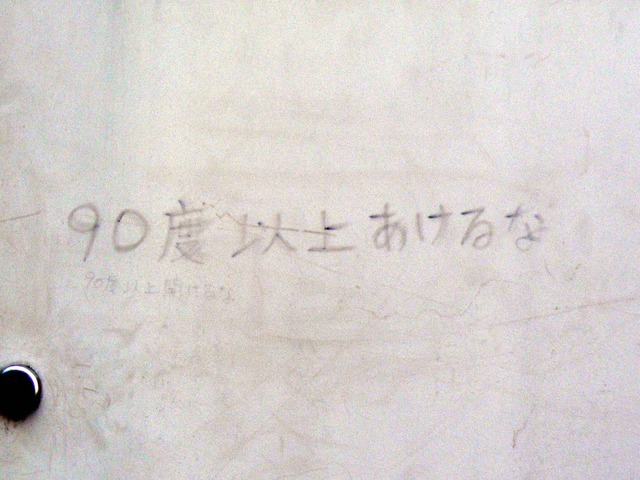 90度以上あけるな
90度以上開けるな